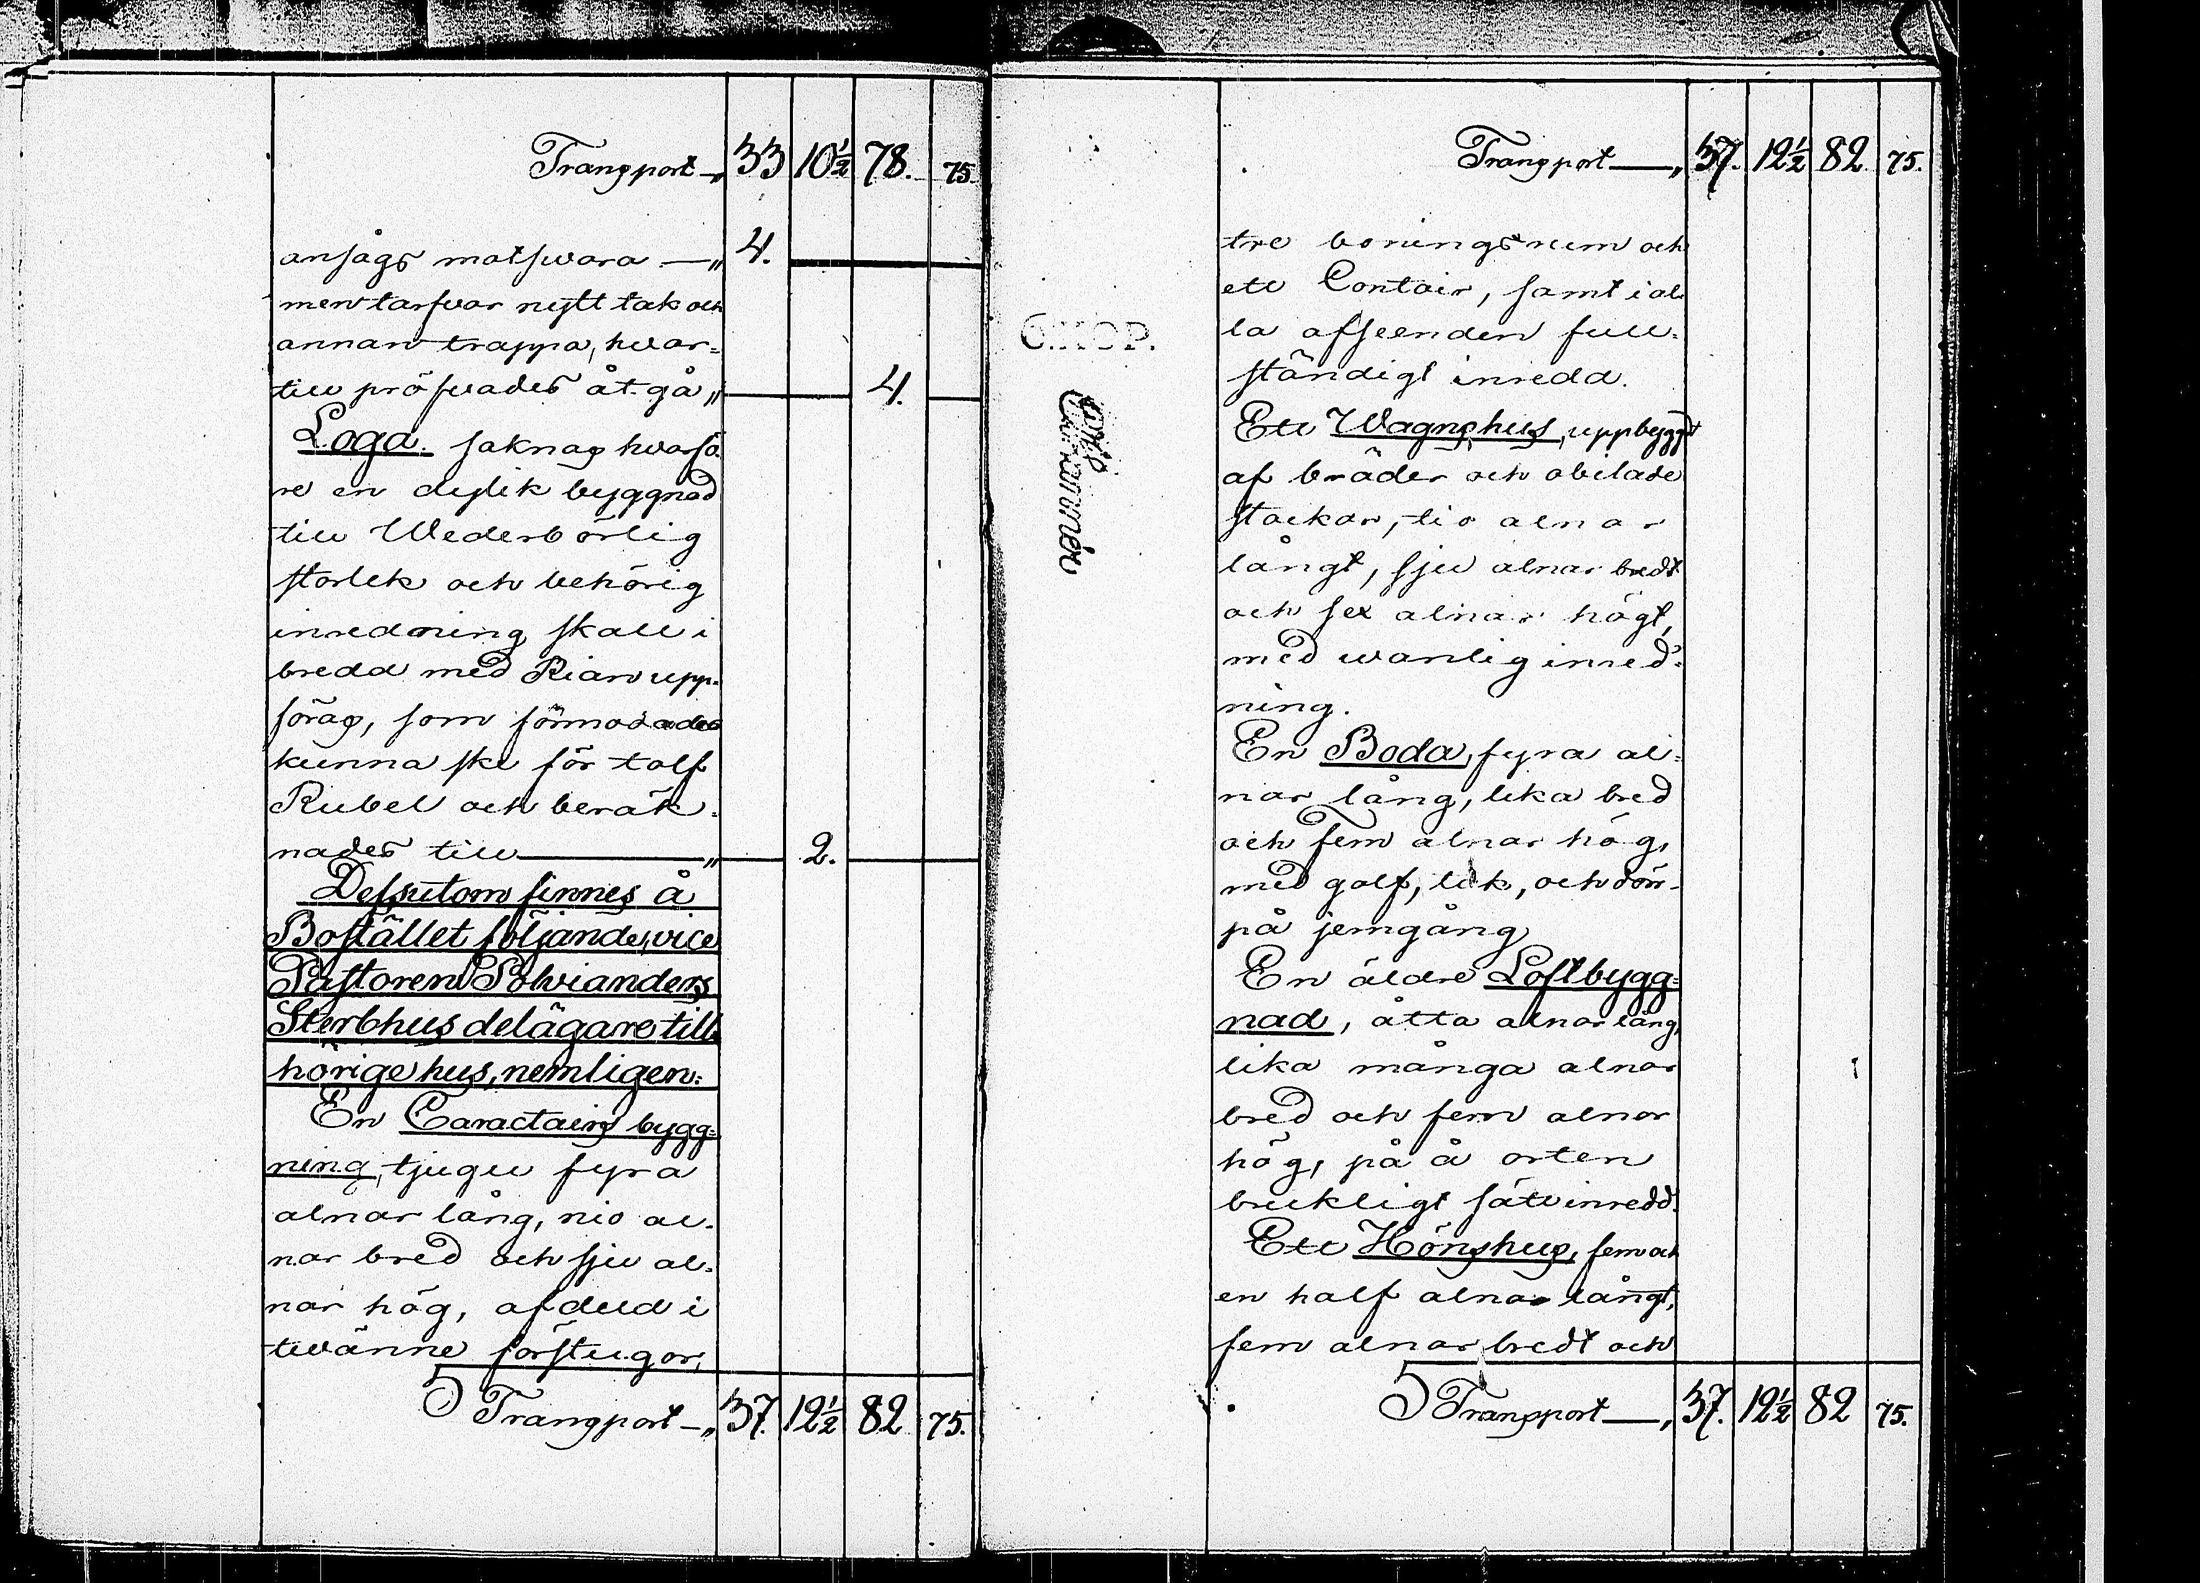 Transport — „ 33 10½ 78. 75.
ansågs motsvara — „ 4.
men tarfvar nytt tak och
annan trappa, hvar=
till pröfvades åtgå „ 4.
Loga. saknas hvarfö
re en dylik byggnad
till Wederbörlig
storlek och behörig
inredning skall i
bredd med Rian upp=
föras, som förmodades
kunna ske för tolf
Rubel och beräk=
nades till — „ 2.
Dessutom finnes å
Bostället följande, vice
Pastoren Polvianders
Sterbhus delägare till
hörige hus, nemligen:
En Caractairs bygg=
ning, tjugu fyra
alnar lång, nio al=
nar bred och sju al=
nar hög, afdeld i
tvänne förstugor,
Transport — „ 37. 12½ 82 75.
Transport — „ 37. 12½ 82 75.
tre boningsrum och
ett Contoir, samt i al
la afseenden full=
ständigt inredd.
Ett Wagnshus, uppbyggt
af bräder och obilade
stockar, tio alnar
långt, sju alnar bredt
och sex alnar högt,
med vanlig inred=
ning.
En Boda, fyra al=
nar lång, lika bred
och fem alnar hög,
med golf, lak, och dörr
på jerngång
En äldre Loftbygg=
nad, åtta alnar lång,
lika många alnar
bred och fem alnar
hög, på å orten
brukligt sätt inredd.
Ett Hönshus, fem och
en half alnar långt,
fem alnar bredt och
Transport — „ 37. 12½ 82 75.
6. KOP.